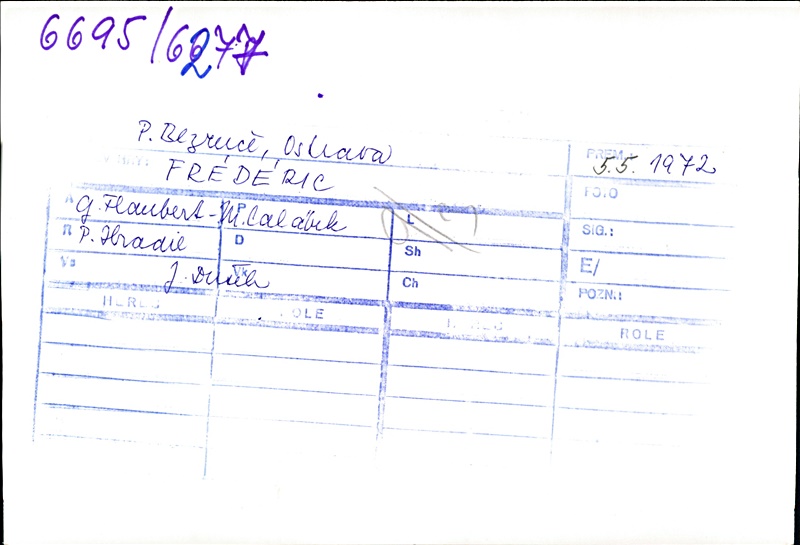 6695/6277
P. Bezruč, Ostrava
PREM.: 5.5. 1972
FRÉDÉRIC
FOTO
A G. Flaubert - M. Calábek
P
L
SIG.:
R P. Hradil
D
Sh
E/
Vs J. Dušek
Vk
Ch
POZN.:
HEREC
ROLE
HEREC
ROLE